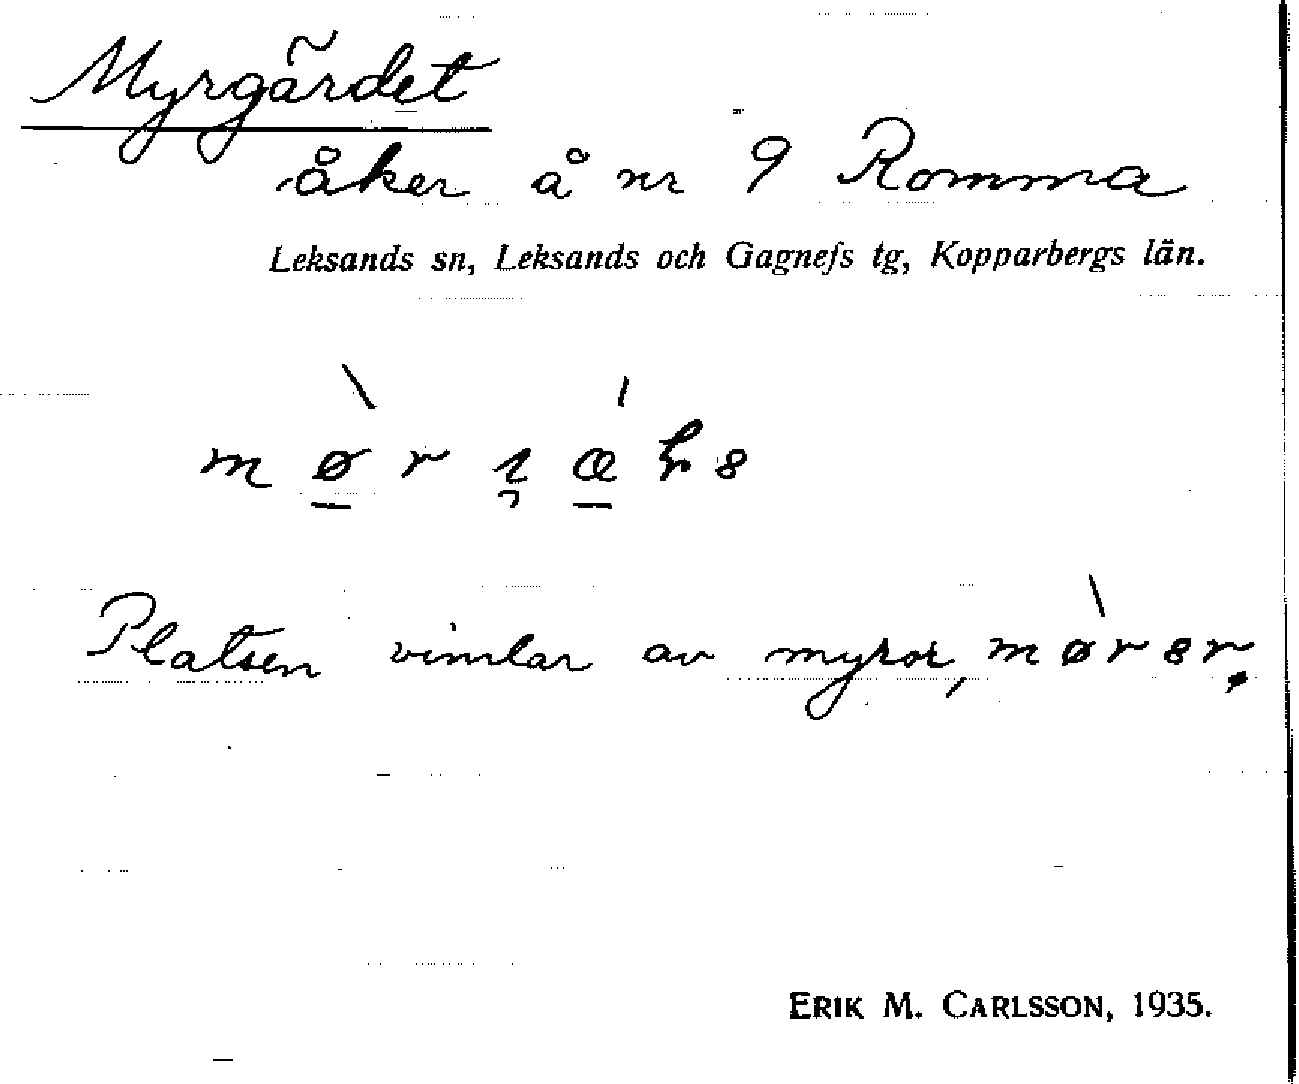 Myrgärdet
åker å nr 9 Romma
Leksands sn, Leksands och Gagnefs tg, Kopparbergs län.
Platsen vimlar av myror,
ERIK M. CARLSSON, 1935.